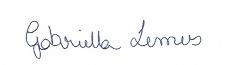 Gabriella Lemes